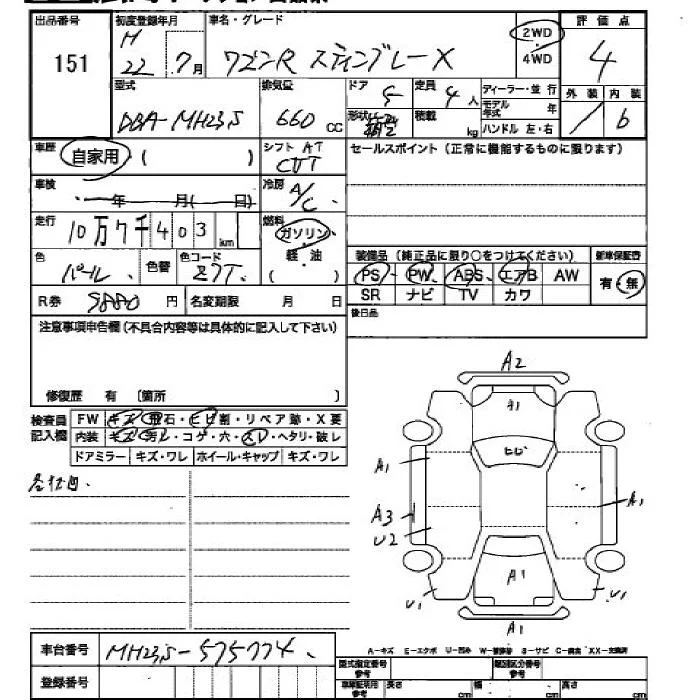 出品番号 初度登録年月 車名・グレード 2WD 4WD 評価点
151 H 22 7月 ワゴンR スティングレーX 4
型式 排気量 ドア 5 定員 4人 ディーラー・並行 外装 内装
DBA-MH23S 660cc 形状 積載 kg モデル年式 年 b
ハンドル 左・右
車歴 自家用 ( ) シフト AT CVT セールスポイント (正常に機能するものに限ります)
車検 年 月( 日) 冷房 A/C
走行 10万7千403km 燃料 ガソリン 軽油 ( )
色 パール 色替 色コード Z7T
装備品 (純正品に限り○をつけてください) 新車保証書
PS PW ABS エアB AW 有・無
SR ナビ TV カワ
R券 9880円 名変期限 月 日 後日品
注意事項申告欄 (不具合内容等は具体的に記入して下さい)
修復歴 有 〔箇所 〕
検査員記入欄 FW キズ・飛石・ヒビ割・リペア跡・X要
内装 キズ・汚レ・コゲ・穴・スレ・ヘタリ・破レ
ドアミラー キズ・ワレ ホイール・キャップ キズ・ワレ
A2
キ1
ヒビ
A1
A1
A3
U2
A1
U1
U1
A1
A-キズ E-エクボ U-凹み W-補修跡 S-サビ C-腐食 XX-交換済
車台番号 MH23S-575774
登録番号
型式指定番号 参考 類別区分番号 参考
車車証明用 参考 長さ cm 幅 cm 高さ cm